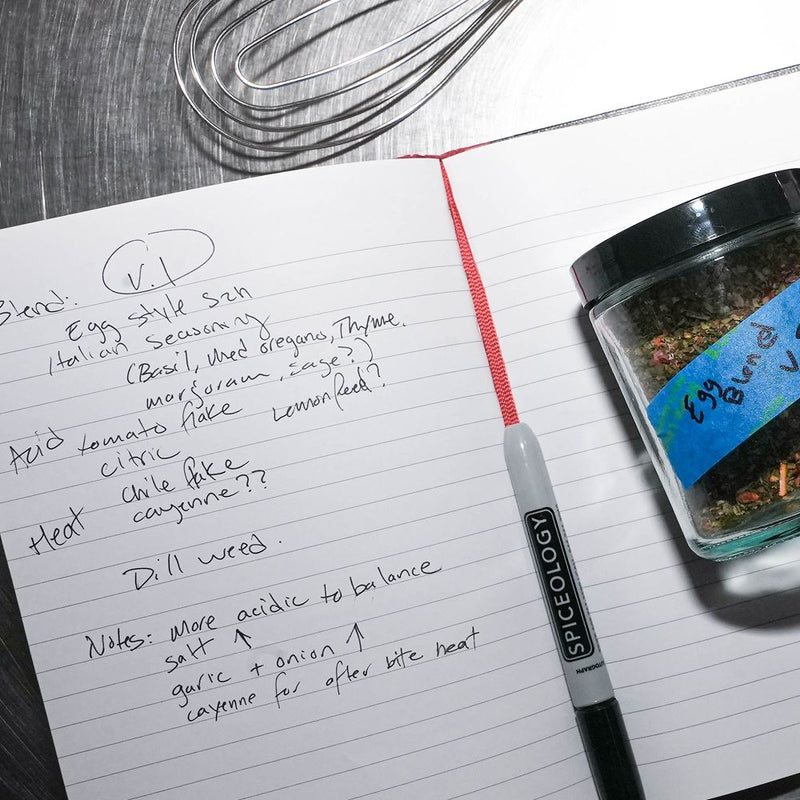 Blend: V.1
Egg style szn
Italian seasoning
(Basil, med oregano, Thyme,
marjoram, sage?)
Acid tomato flake Lemon Peed?
citric
Heat chile flake
cayenne??
Dill weed.
Notes: More acidic to balance
salt ↑
garlic + onion ↑
cayenne for after bite heat
SPICEOLOGY
Egg
Blend